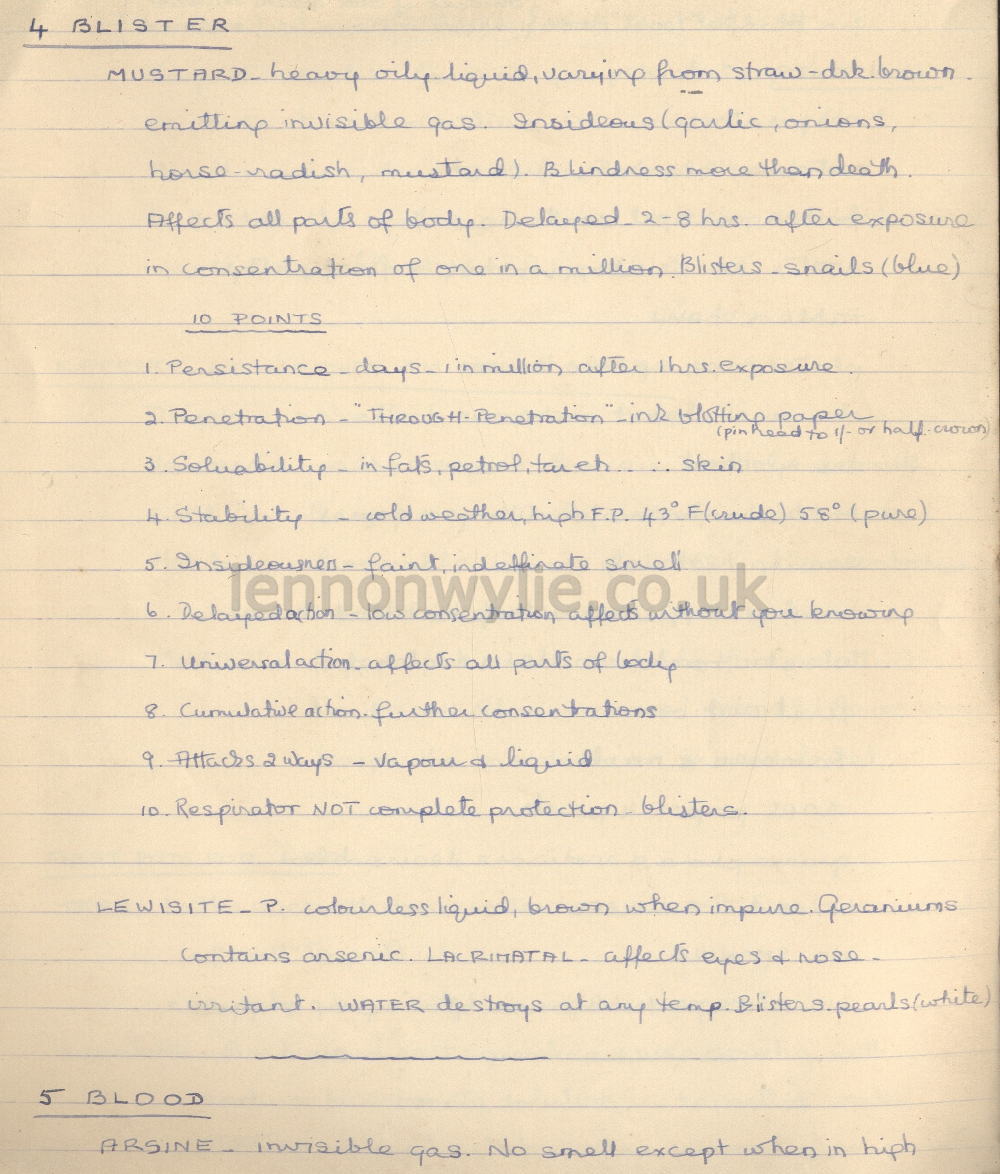 4 BLISTER
MUSTARD - heavy oily liquid, varying from straw - drk. brown.
emitting invisible gas. Insideous (garlic, onions,
horse-radish, mustard). Blindness more than death.
Affects all parts of body. Delayed - 2-8 hrs. after exposure
in consentration of one in a million. Blisters - snails (blue)
10 POINTS
1. Persistance - days - 1 in million after 1 hrs. exposure.
2. Penetration - "THROUGH-Penetration" - ink blotting paper
(pin head to 1/- or half-crown)
3. Soluability - in fats, petrol, tar eh... ∴ skin
4. Stability - cold weather, high F.P. 43° F (crude) 58° (pure)
5. Insideousness - faint, indeffinate smell
lennonwylie.co.uk
6. Delayed action - low consentration affects without you knowing
7. Universal action - affects all parts of body
8. Cumulative action - further consentrations
9. Attacks 2 ways - vapour & liquid
10. Respirator NOT complete protection - blisters.
LEWISITE - P. colourless liquid, brown when impure. Geraniums
contains arsenic. LACRIMATAL - affects eyes & nose -
irritant. WATER destroys at any temp. Blisters - pearls (white)
5 BLOOD
ARSINE - invisible gas. No smell except when in high